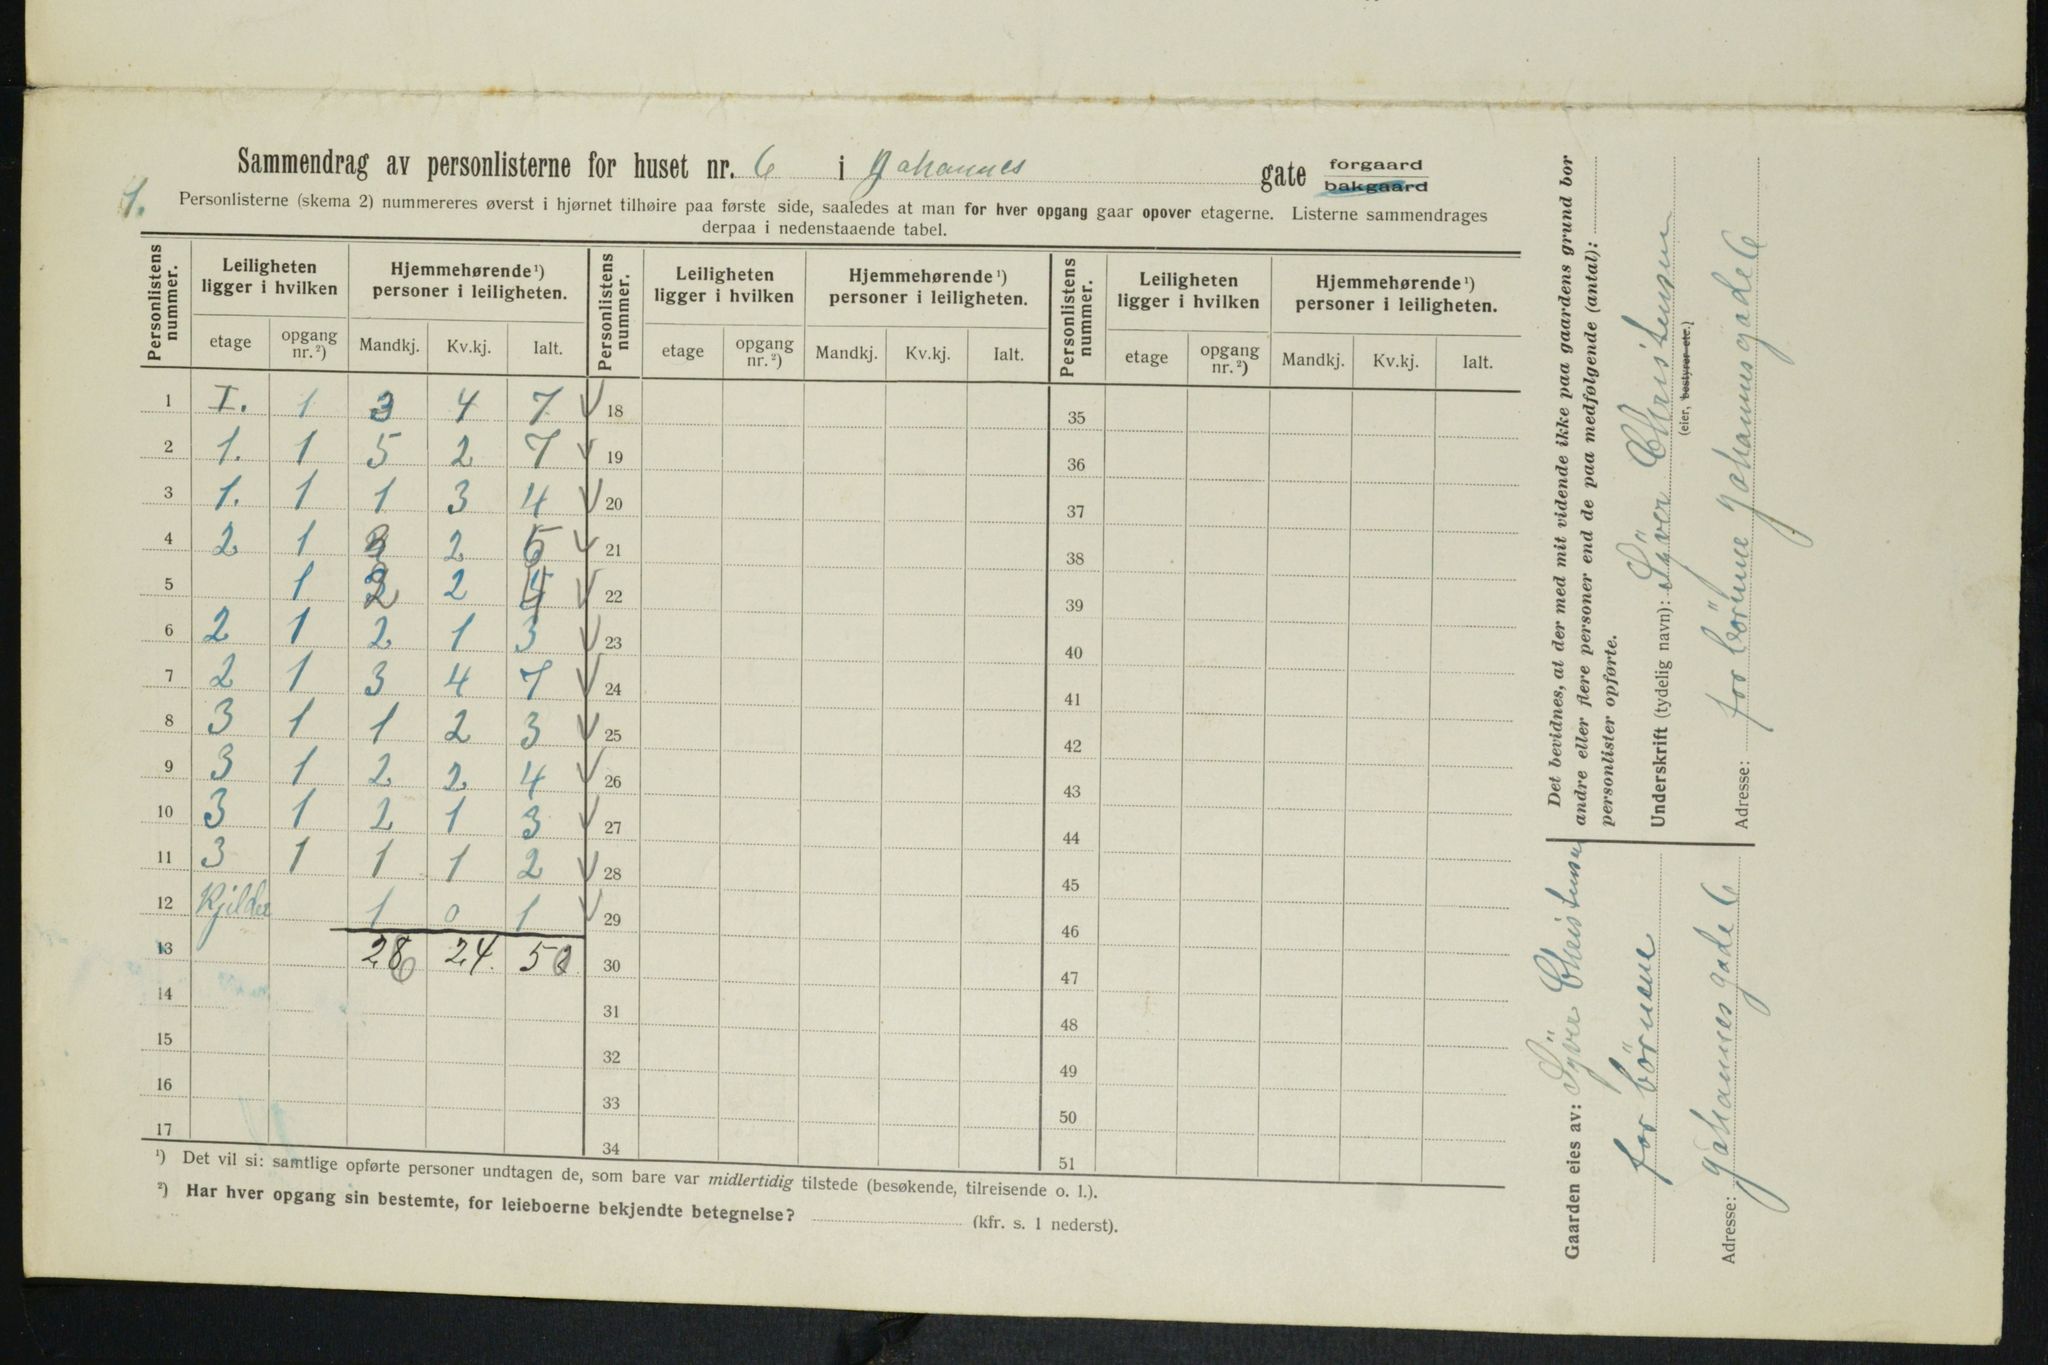 Sammendrag av personlisterne for huset nr. 6 i Johannes gate forgaard bakgaard
1.
Personlisterne (skema 2) nummereres øverst i hjørnet tilhøire paa første side, saaledes at man for hver opgang gaar opover etagerne. Listerne sammendrages
derpaa i nedenstaaende tabel.
Personlistens nummer. Leiligheten ligger i hvilken Hjemmehørende ¹) personer i leiligheten. Personlistens nummer. Leiligheten ligger i hvilken Hjemmehørende ¹) personer i leiligheten. Personlistens nummer. Leiligheten ligger i hvilken Hjemmehørende ¹) personer i leiligheten.
etage opgang nr. ²) Mandkj. Kv.kj. Ialt. etage opgang nr. ²) Mandkj. Kv.kj. Ialt. etage opgang nr. ²) Mandkj. Kv.kj. Ialt.
1 I. 1 3 4 7 18 35
2 1. 1 5 2 7 19 36
3 1. 1 1 3 4 20 37
4 2 1 2 5 21 38
5 1 2 2 4 22 39
6 2 1 2 1 3 23 40
7 2 1 3 4 7 24 41
8 3 1 1 2 3 25 42
9 3 1 2 2 4 26 43
10 3 1 2 1 3 27 44
11 3 1 1 1 2 28 45
12 Kjelder 1 0 1 29 46
13 26 24. 50 30 47
14 31 48
15 32 49
16 33 50
17 34 51
¹) Det vil si: samtlige opførte personer undtagen de, som bare var midlertidig tilstede (besøkende, tilreisende o. l.).
²) Har hver opgang sin bestemte, for leieboerne bekjendte betegnelse? (kfr. s. 1 nederst).
Det bevidnes, at der med mit vidende ikke paa gaardens grund bor
andre eller flere personer end de paa medfølgende (antal):
personlister opførte.
Underskrift (tydelig navn): Syver Christensen
(eier, bestyrer etc.)
Adresse: for börnene Johannesgade 6
Gaarden eies av: Syver Christensen
for börnene
Adresse: Johannesgade 6